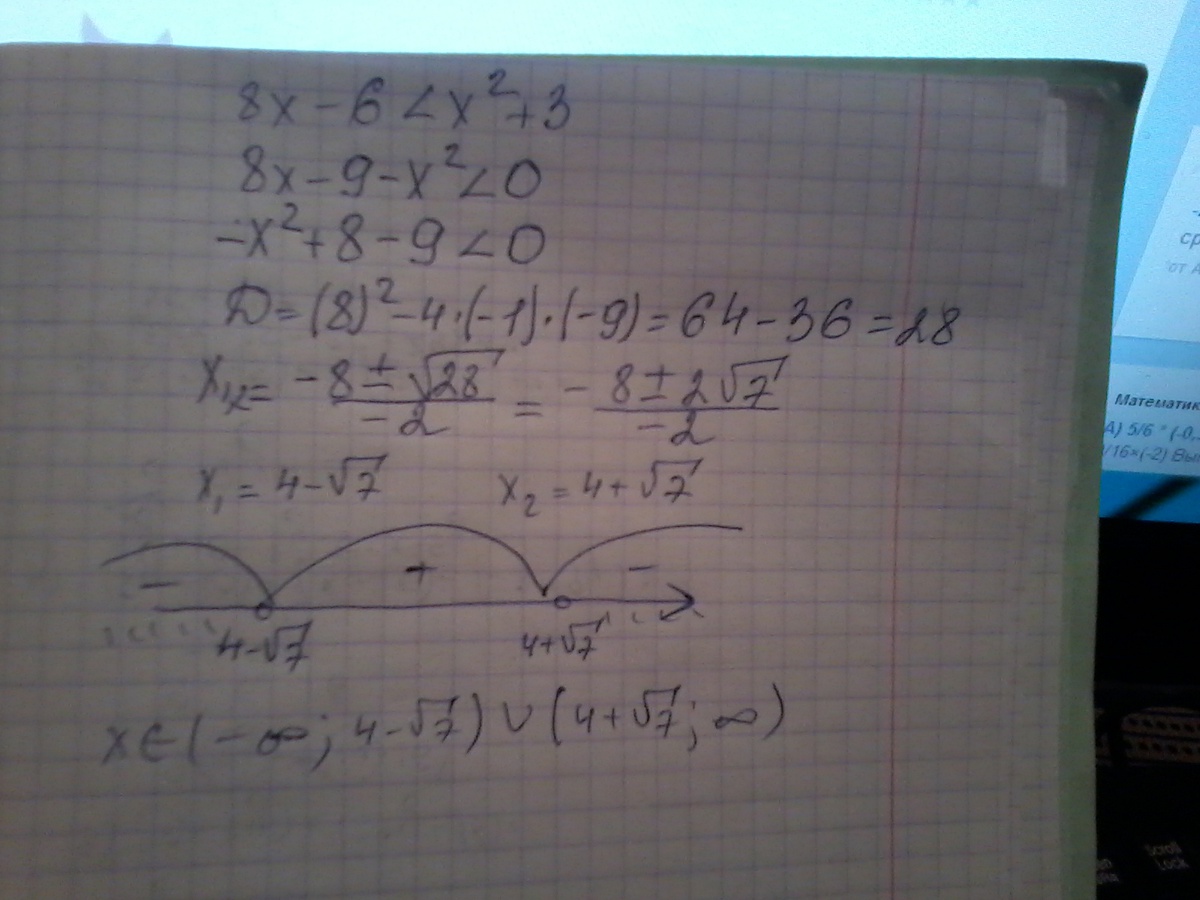 8x - 6 < x² + 3
8x - 9 - x² < 0
-x² + 8 - 9 < 0
D = (8)² - 4·(-1)·(-9) = 64 - 36 = 28
x₁,₂ = (-8 ± √28)/(-2) = (-8 ± 2√7)/(-2)
x₁ = 4 - √7 x₂ = 4 + √7
- + -
4-√7 4+√7
x ∈ (-∞; 4-√7) ∪ (4+√7; ∞)
ср
от А
Математик
А) 5/6 * (-0,
/16×(-2) Вы
Scroll
Lock